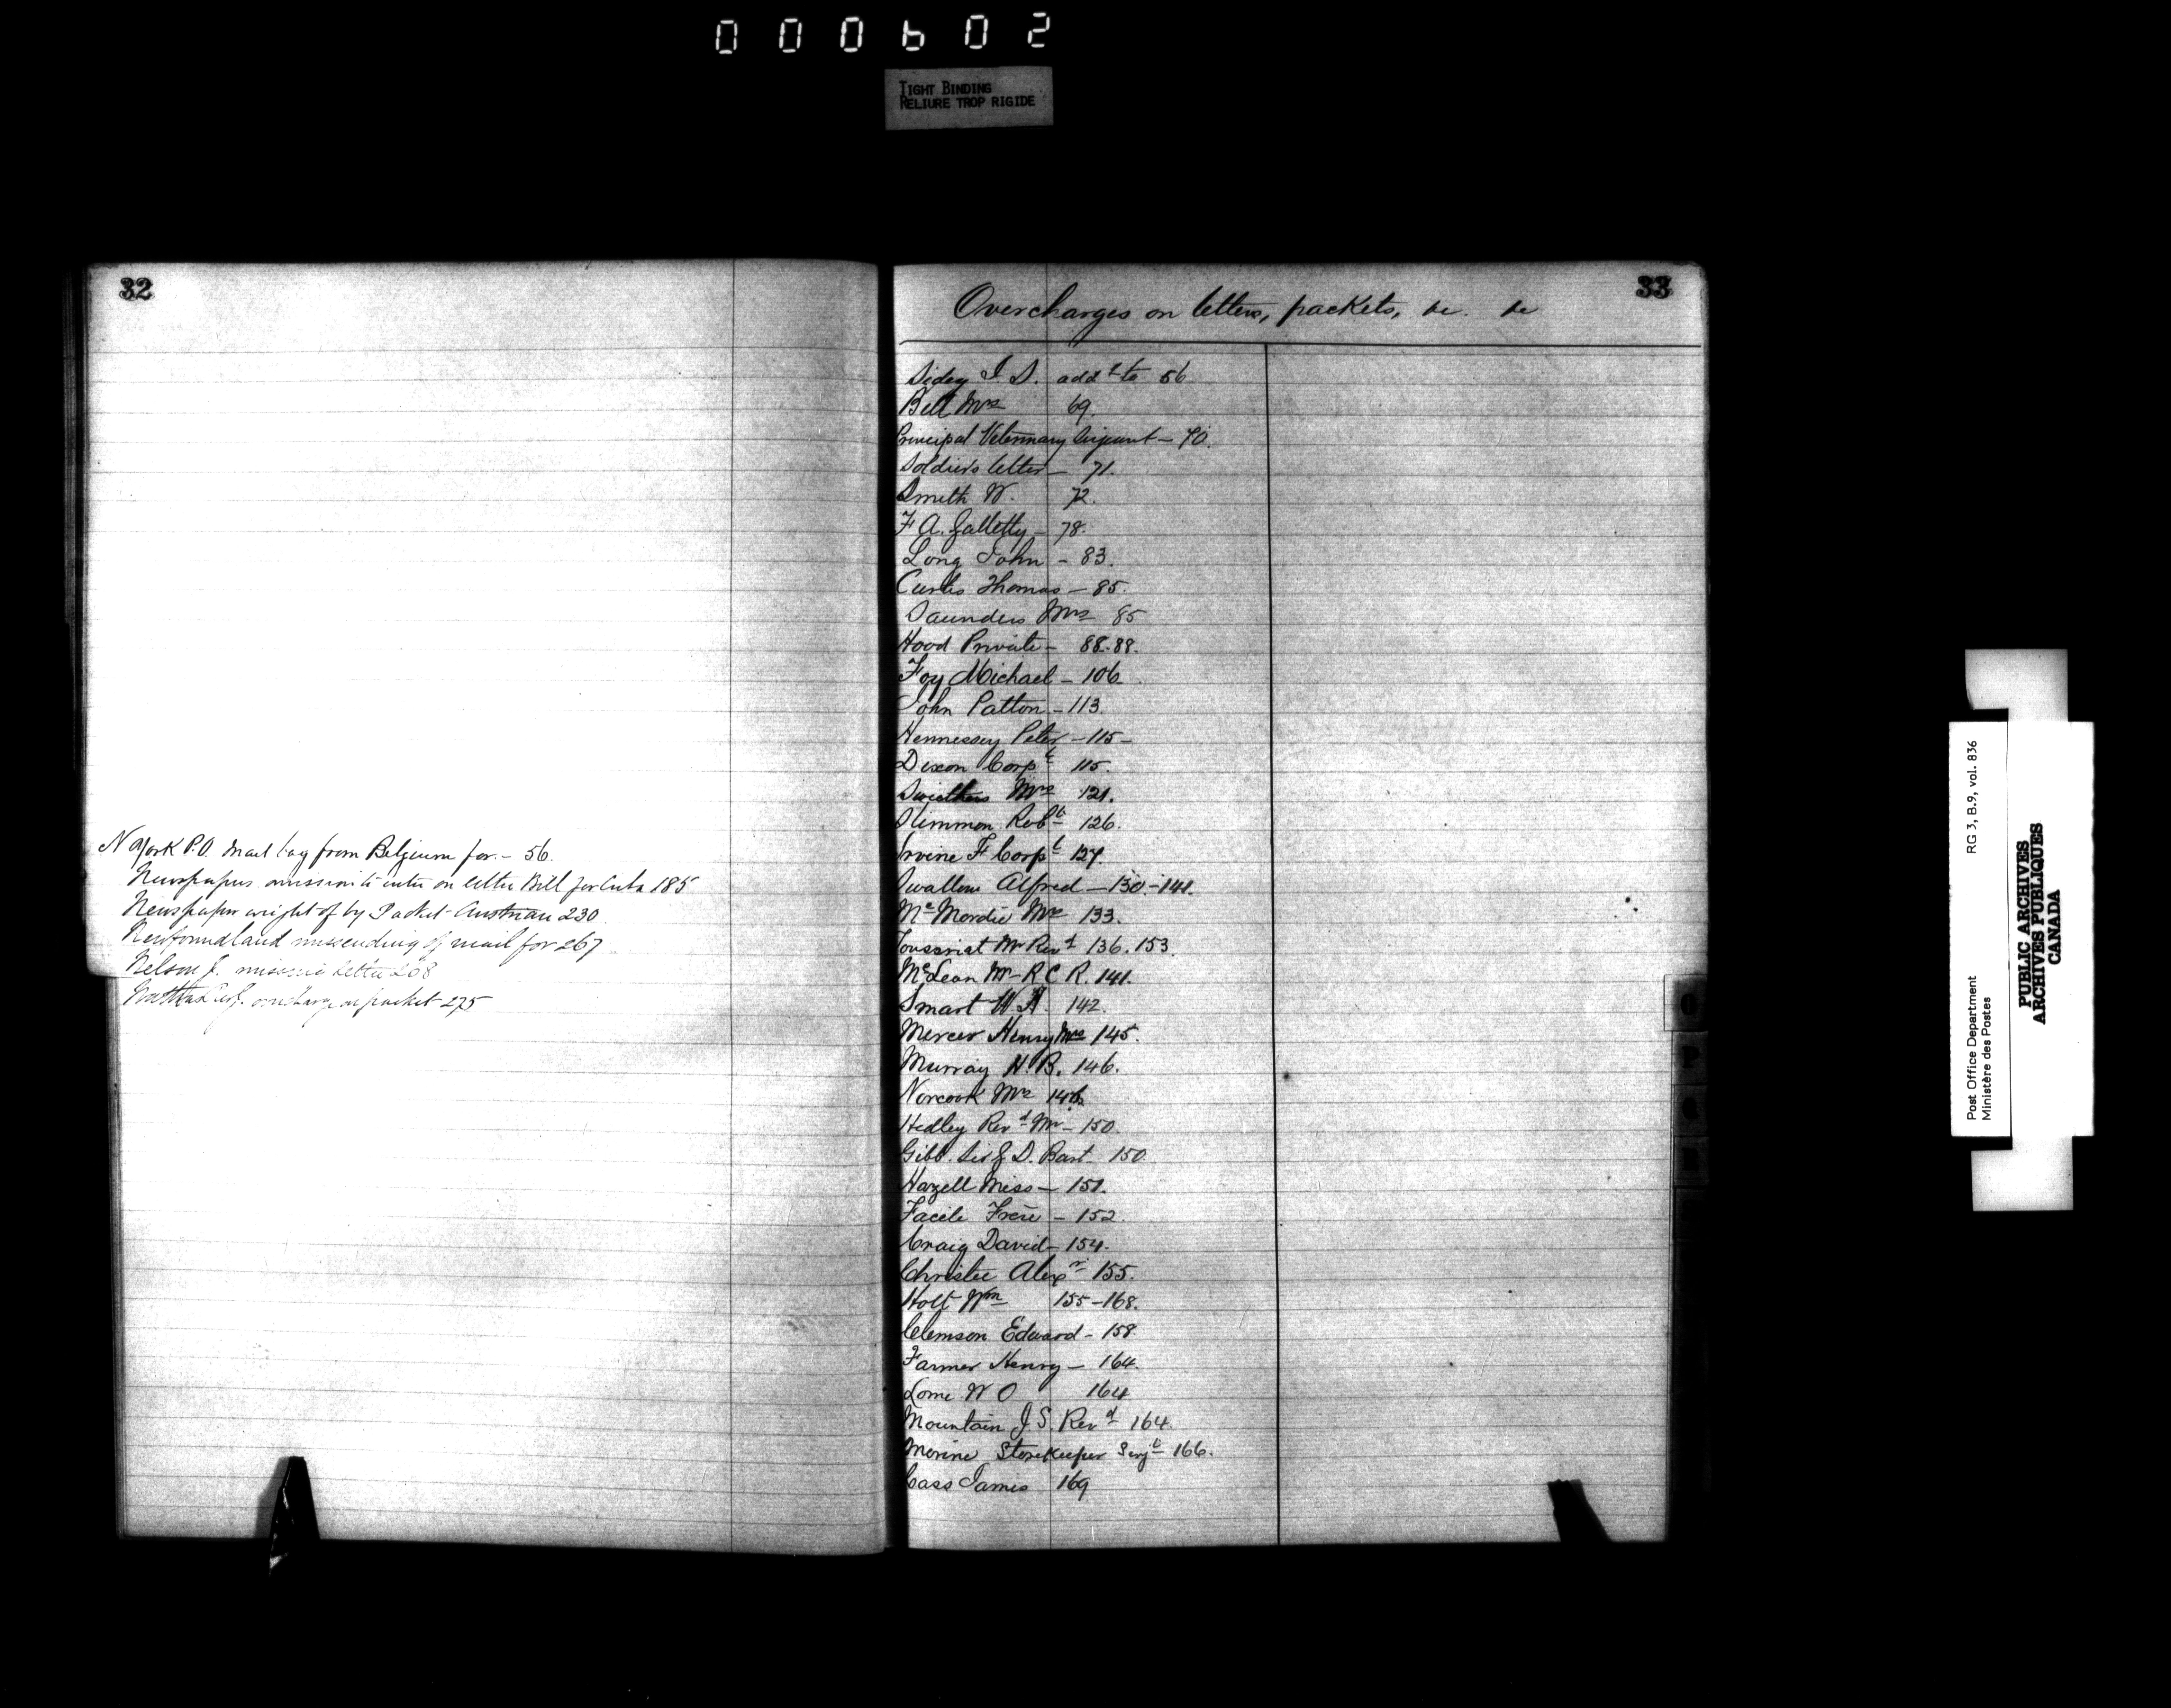 000602
TIGHT BINDING
RELIURE TROP RIGIDE
32
N York P.O. Mail bag from Belgium for - 56.
Newspapers omission to enter on letter Bill for Cuba 185
Newspaper weight of by Packet - Austrian 230
Newfoundland missending of mail for 267
Nelson J. missing letter 268
overcharge on packet 275
33
Overcharges on letters, packets, &c. &c
Sidey I S. addd to 56
Bell Mrs 69.
Principal Veterinary Surgeant - 70.
Soldiers letter - 71.
Smith W. 72.
F A. Galletly - 78.
Long John - 83.
Curtis Thomas - 85.
Saunders Mrs 85
Hood Private - 88.88.
Foy Michael - 106
John Patton - 113.
Hennessey Peter - 115 -
Dixon Corpl 115.
Mrs 121.
Slimmon Robt 126.
Irvine F Corpl 127.
Swallow Alfred - 130. - 141.
Mc Mordie Mrs 133.
Mr Revd 136. 153
McLean Mr - R C R. 141.
Smart W. H. 142.
Mercer Henry Mrs 145.
Murray H. B. 146.
Norcook Mrs 146
Hedley Revd Mr - 150.
Gibb. Sir G. D. Bart 150
Hazell Miss - 151.
Facile Frere - 152.
Craig David - 154.
Christie Alexr 155.
Holt Wm 155 - 168.
Clemson Edward - 158.
Farmer Henry - 164.
Lorne W O 164
Mountain J. S. Revd 164.
Marine Storekeeper Sergt 166.
Cass James 169
O
P
Q
R
Post Office Department
Ministère des Postes
RG 3, B.9, vol. 836
PUBLIC ARCHIVES
ARCHIVES PUBLIQUES
CANADA